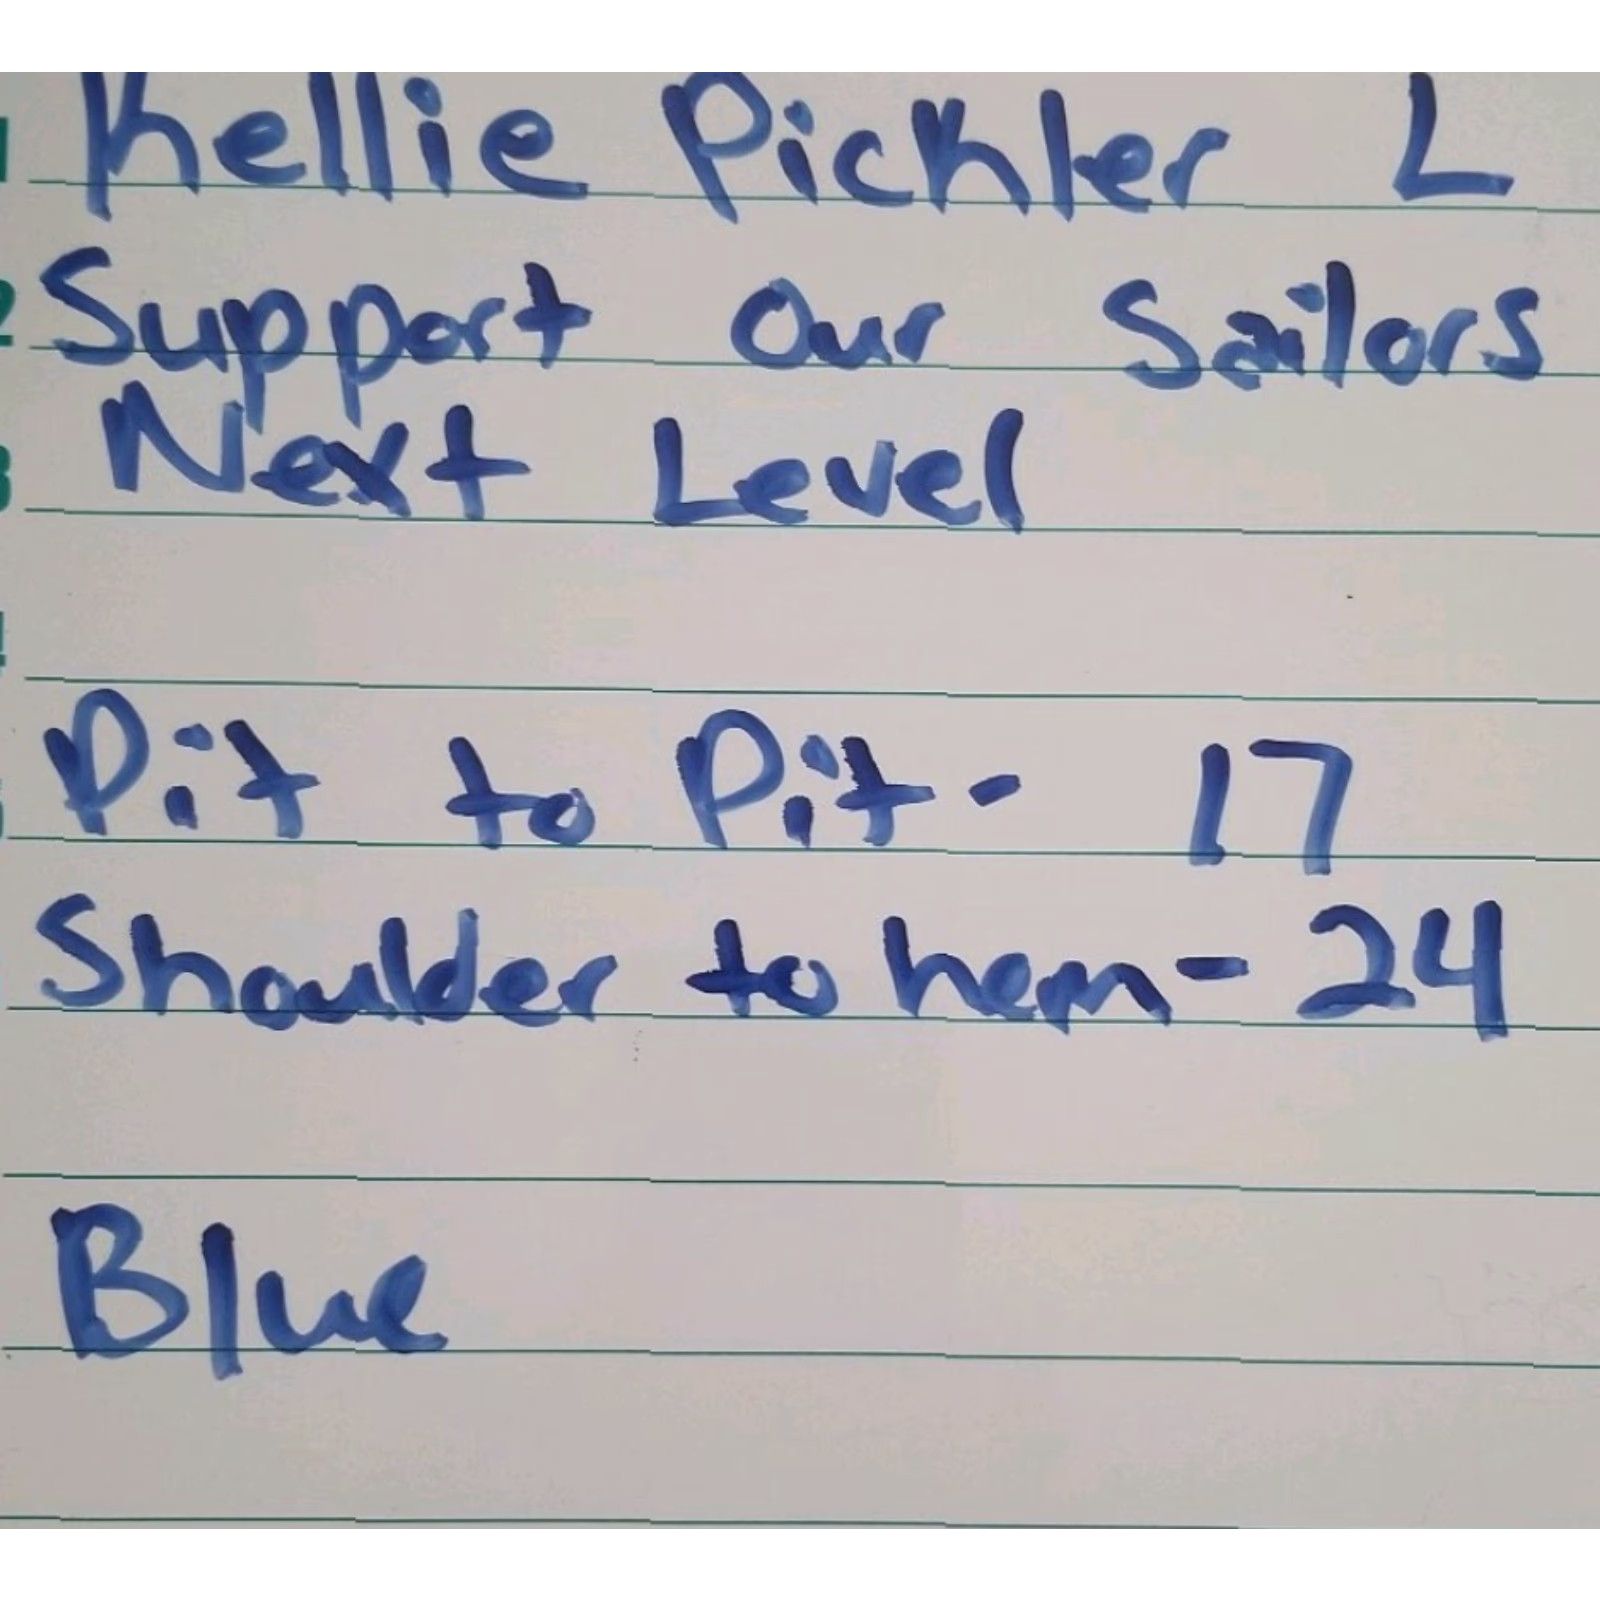 Kellie Pickler L
Support Our Sailors
Next Level
Pit to Pit - 17
Shoulder to hem - 24
Blue